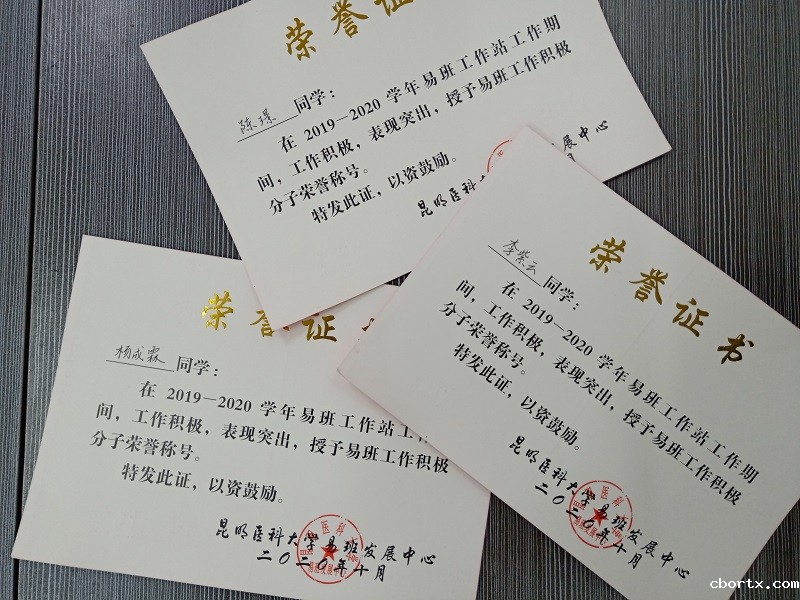 荣誉证
陈璟 同学：
在 2019—2020 学年易班工作站工作期
间，工作积极，表现突出，授予易班工作积极
分子荣誉称号。
特发此证，以资鼓励。
昆明医科大 发展中心
月
荣誉证书
李紫云 同学：
在 2019—2020 学年易班工作站工作期
间，工作积极，表现突出，授予易班工作积极
分子荣誉称号。
特发此证，以资鼓励。
昆明医科大学易班发展中心
二〇二〇年十月
荣誉证
杨成霖 同学：
在 2019—2020 学年易班工作站工
间，工作积极，表现突出，授予易班工作积极
分子荣誉称号。
特发此证，以资鼓励。
昆明医科大学易班发展中心
二〇二〇年十月
cbortx.com